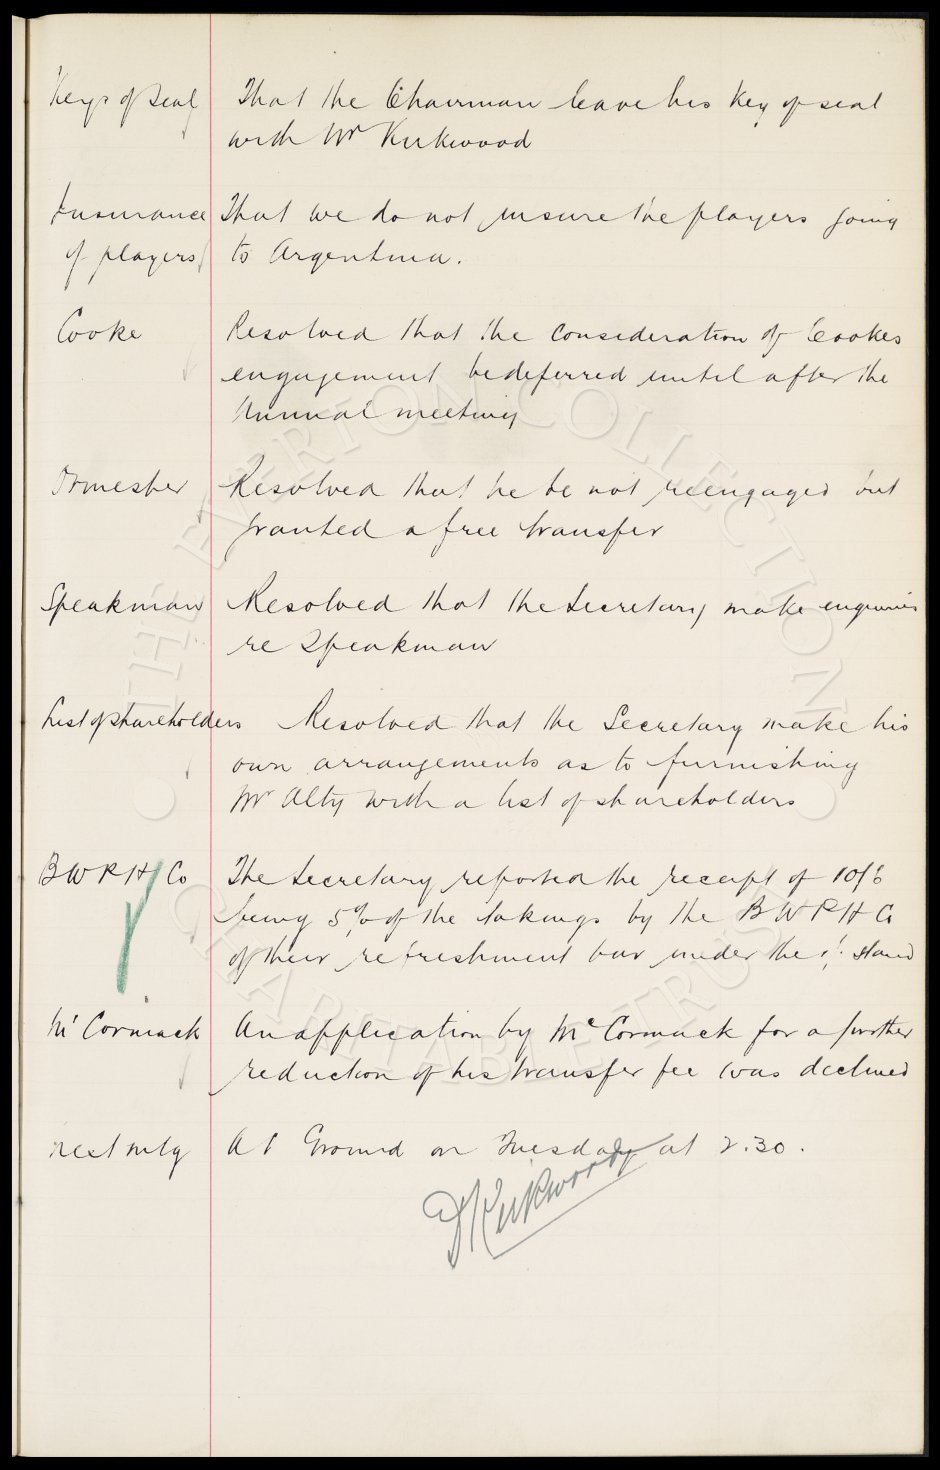 Keys of Seal That the Chairman leave his key of seal
with Mr Kirkwood
Insurance That we do not insure the players going
of players to Argentina.
Cooke Resolved that the consideration of Cookes
engagement be deferred until after the
Annual meeting
Ormesher Resolved that he be not reengaged but
granted a free transfer
Speakman Resolved that the Secretary make enquiries
re Speakman
List of shareholders Resolved that the Secretary make his
own arrangements as to furnishing
Mr Alty with a list of shareholders
B W R H Co The Secretary reported the receipt of 10/6
being 5% of the takings by the B W R H Co
of their refreshment bar under the stand
McCormack An application by McCormack for a further
reduction of his transfer fee was declined
next mtg At Ground on Tuesday at 2.30.
D Kirkwood
THE EVERTON COLLECTION
CHARITABLE TRUST